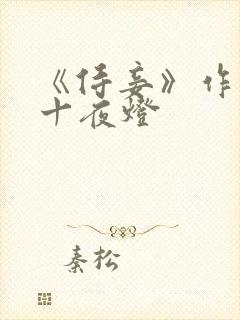 《侍妾》作
十夜燈
秦松